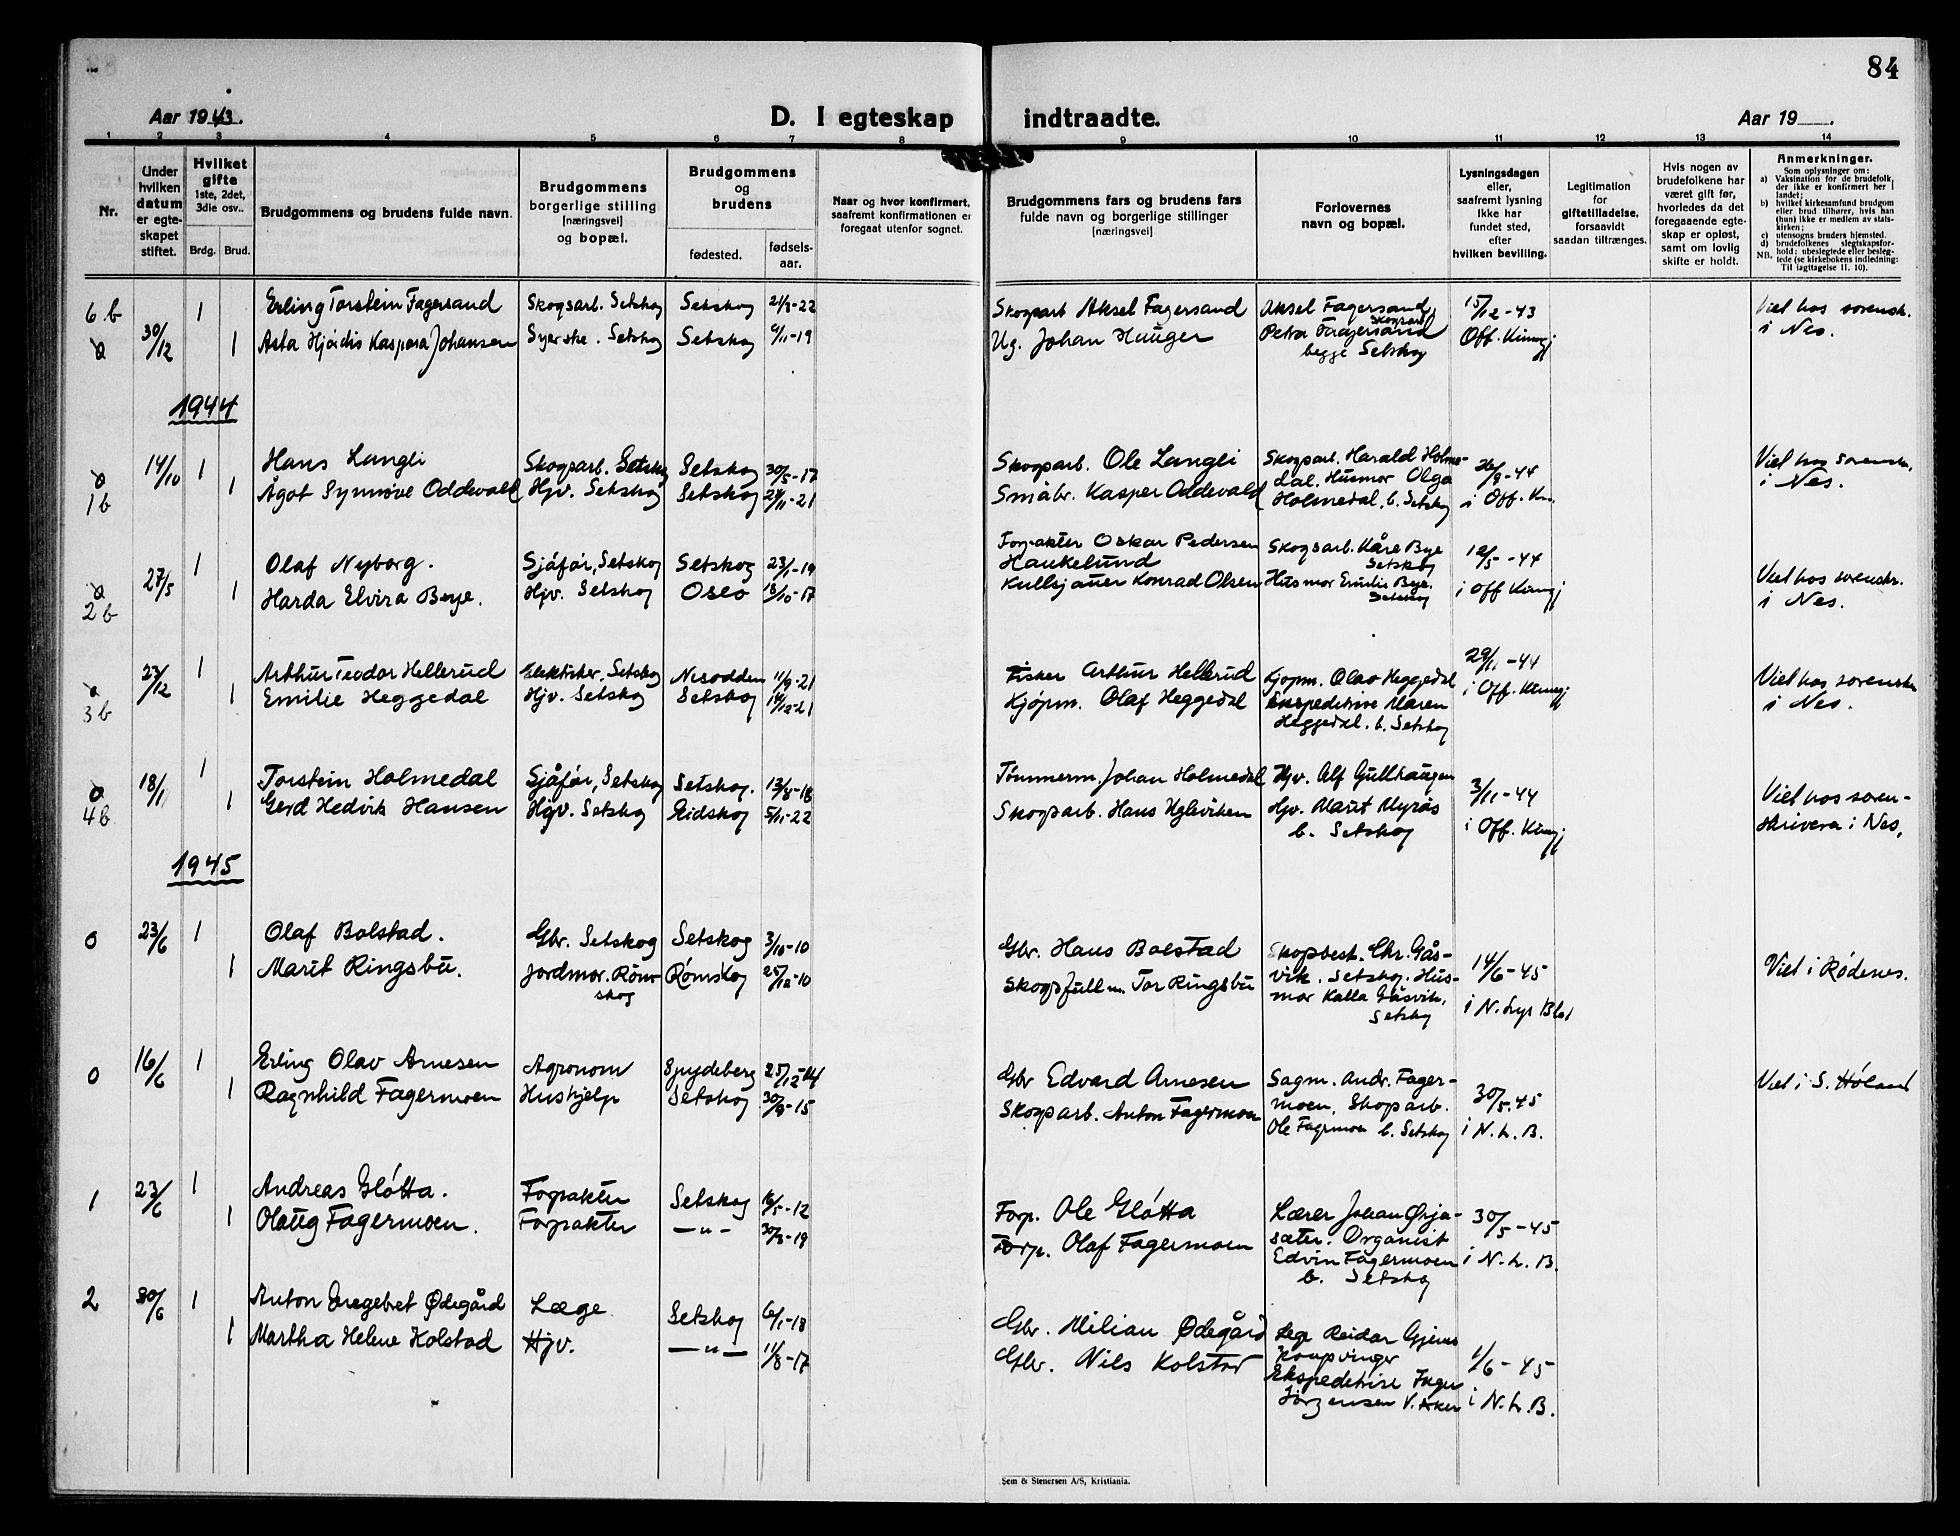 84
Aar 1943.
D. I egteskap indtraadte.
Aar 19
1 2 3 4 5 6 7 8 9 10 11 12 13 14
Nr.
Under hvilken datum er egteskapet stiftet.
Hvilket gifte 1ste, 2det, 3die osv..
Brdg. Brud.
Brudgommens og brudens fulde navn.
Brudgommens borgerlige stilling [næringsvei] og bopæl.
Brudgommens og brudens
fødested.
fødselsaar.
Naar og hvor konfirmert, saafremt konfirmationen er foregaat utenfor sognet.
Brudgommens fars og brudens fars fulde navn og borgerlige stillinger [næringsvei]
Forlovernes navn og bopæl.
Lysningsdagen eller, saafremt lysning ikke har fundet sted, efter hvilken bevilling.
Legitimation for giftetilladelse, forsaavidt saadan tiltrænges.
Hvis nogen av brudefolkene har været gift før, hvorledes da det foregaaende egteskap er opløst, samt om lovlig skifte er holdt.
Anmerkninger.
Som oplysninger om:
a) Vaksination for de brudefolk, der ikke er konfirmert her i landet;
b) hvilket kirkesamfund brudgom eller brud tilhører, hvis han (hun) ikke er medlem av statskirken;
c) utensogns bruders hjemsted.
d) brudefolkenes slegtskapsforhold: ubeslegtede eller beslegtede (se kirkebokens indledning:
NB. Til iagttagelse II. 10).
6 b 30/12 1 Erling Torstein Fagersand Skogsarb. Setskog Setskog 21/3-22 Skogsarb Aksel Fagersand Aksel Fagersand, Skogsarb. 15/12-43 Viel hos sorensk.
0 1 Asta Hjørdis Kaspara Johansen Syerske. Setskog Setskog 9/11-19 Ug. Johan Hauger Petra Fagersand begge Setskog Off. Kunngj i Nes.
1944
0 14/10 1 Hans Langli Skogsarb. Setskog Setskog 30/5-17 Skogsarb. Ole Langli Skogsarb. Harald Holme- 26/9-44 Viel hos sorensk.
1b 1 Ågot Synnøve Oddevald Hjv. Setskog Setskog 24/11-21 Småbr. Kasper Oddevald dal. Husmor Olga Holmedal, b. Setskog i Off. Kun. i Nes.
0 27/5 1 Olaf Nyborg. Sjåfør, Setskog Setskog 23/1-19 Forpakter Oskar Pedersen Haukelund Skogsarb. Kåre Bye Setskog 12/5-44 Viel hos sorenskr.
2b 1 Harda Elvira Bye. Hjv. Setskog Oslo 18/10-17 Kullsjauer Konrad Olsen Husmor Emilie Bye. Setskog i Off Kunngj i Nes.
0 27/12 1 Arthur Teodor Hellerud Elektriker, Setskog Nesodden 11/9-21 Fisker Arthur Hellerud Kjøpm. Olav Heggedal 29/11-44 Viel hos sorenskr
3b 1 Emilie Heggedal Hjv. Setskog Setskog 14/12-21 Kjøpm. Olaf Heggedal Ekspeditrise Maren Heggedal. b. Setskog i Off. Kunngj i Nes.
0 18/11 1 Torstein Holmedal Sjåfør, Setskog Setskog. 13/8-18 Tømmerm. Johan Holmedal Hjv. Alf Gullhaugen 3/11-44 Viel hos soren-
4b 1 Gerd Hedvik Hansen Hjv. Setskog Eidskog 5/11-22 Skogsarb. Hans Ugleviken Hjv. Marit Myrås b. Setskog i Off. Kunngj skriveren i Nes.
1945
0 23/6 1 Olaf Bolstad. Gbr. Setskog Setskog 3/10-10 Gbr. Hans Bolstad Skogbest. Chr. Gås- 14/6-45 Viel i Rødenes.
1 Marit Ringsbu. Jordmor. Rømskog Rømskog 25/12-10 Skogsfullm. Tor Ringsbu vik. Setskog. Husmor Kalla Gåsvik, Setskog i N. Lys Blad
0 16/6 1 Erling Olav Arnesen Agronom Spydeberg 25/12-14 Gbr Edvard Arnesen Sagm. Andr. Fager- 30/5.45 Viel i S. Høland
1 Ragnhild Fagermoen Hushjelp Setskog 30/9-15 Skogsarb. Anton Fagermoen moen, Skogsarb. Ole Fagermoen b. Setskog i N. L. B.
1 23/6 1 Andreas Gløtta. Forpakter Setskog 16/5-12 Forp. Ole Gløtta Lærer Johan Ørja- 30/5-45
1 Olaug Fagermoen. Forpakter —"— 30/3-19 Forp. Olaf Fagermoen sæter. Organist Edvin Fagermoen b. Setskog i N. L. B.
2 30/6 1 Anton Engebret Ødegård Læge Setskog 6/1-18 Gbr. Milian Ødegård Lege Reidar Gjems 1/6-45
1 Martha Helene Kolstad Hjv. —"— 11/8-17 Gbr. Nils Kolstad Kongsvinger Ekspeditrise Jørgensen V. Aker i N. L. B.
Sem & Stenersen A/S, Kristiania.